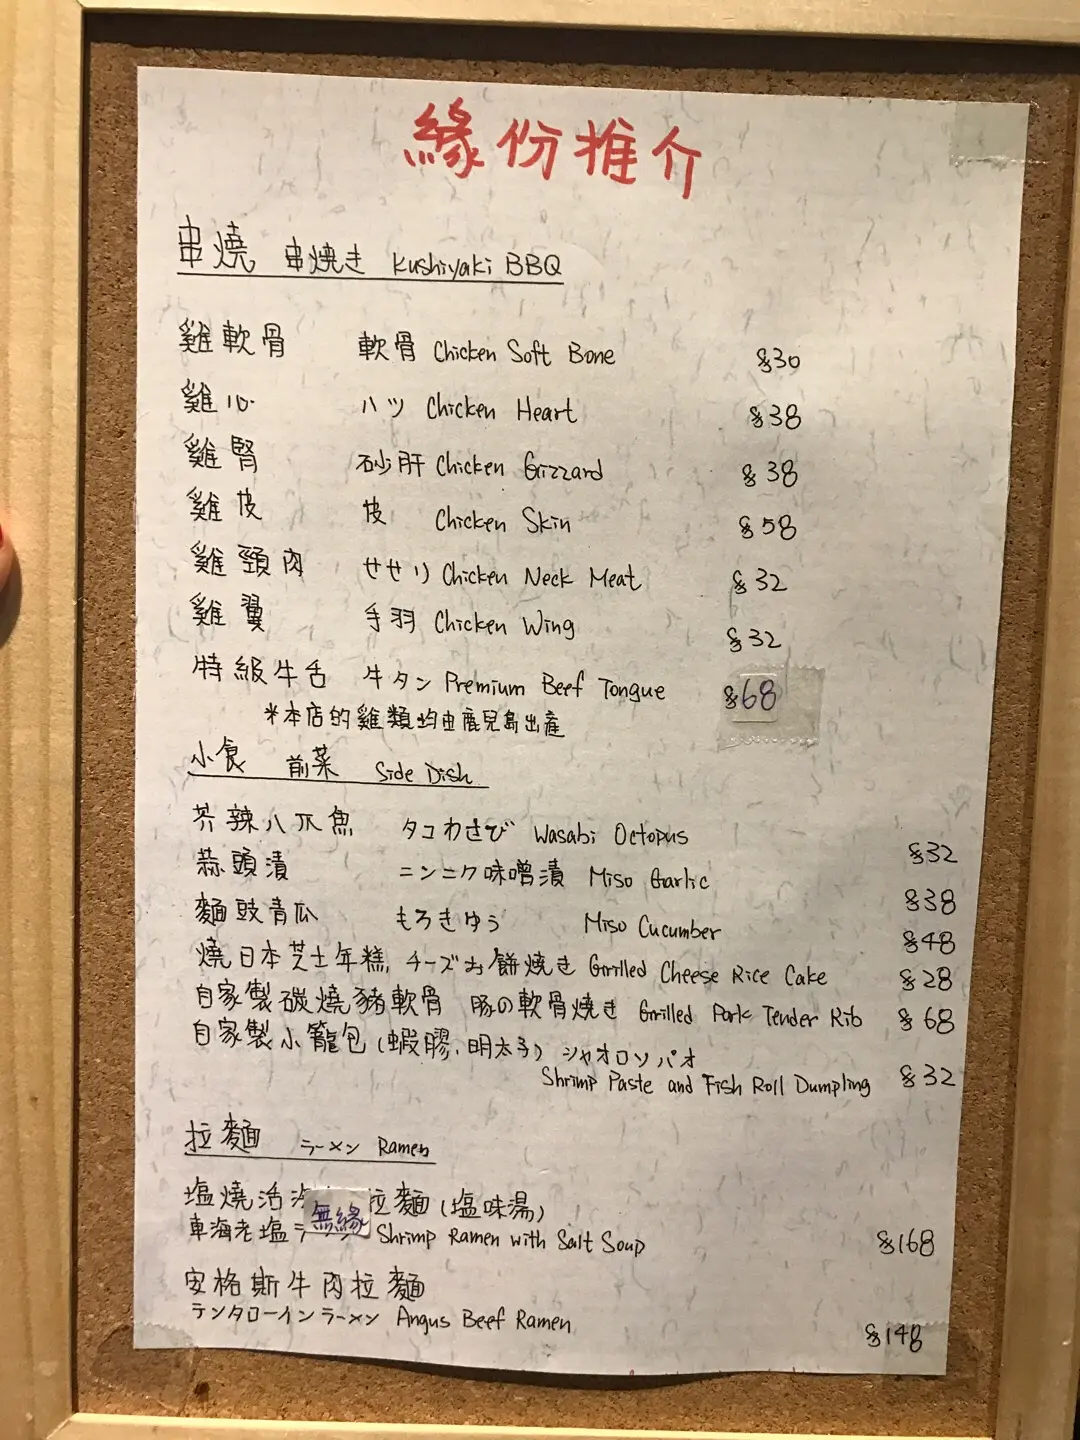 緣份推介
串燒 串焼き Kushiyaki BBQ
雞軟骨 軟骨 Chicken Soft Bone $30
雞心 ハツ Chicken Heart $38
雞腎 砂肝 Chicken Grizzard $38
雞皮 皮 Chicken Skin $58
雞頸肉 せせり Chicken Neck Meat $32
雞翼 手羽 Chicken Wing $32
特級牛舌 牛タン Premium Beef Tongue $68
*本店的雞類均由鹿児島出産
小食 前菜 Side Dish
芥辣八爪魚 タコわさび Wasabi Octopus $32
蒜頭漬 ニンニク味噌漬 Miso Garlic $38
麵豉青瓜 もろきゆう Miso Cucumber $48
燒日本芝士年糕 チーズお餅焼き Grilled Cheese Rice Cake $28
自家製碳燒豬軟骨 豚の軟骨焼き Grilled Pork Tender Rib $68
自家製小籠包(蝦膠、明太子) シャオロンパオ
Shrimp Paste and Fish Roll Dumpling $32
拉麵 ラーメン Ramen
塩燒活 拉麵(塩味湯)
無緣
車海老塩ラ Shrimp Ramen with Salt Soup $168
安格斯牛肉拉麵
テンタローインラーメン Angus Beef Ramen $148